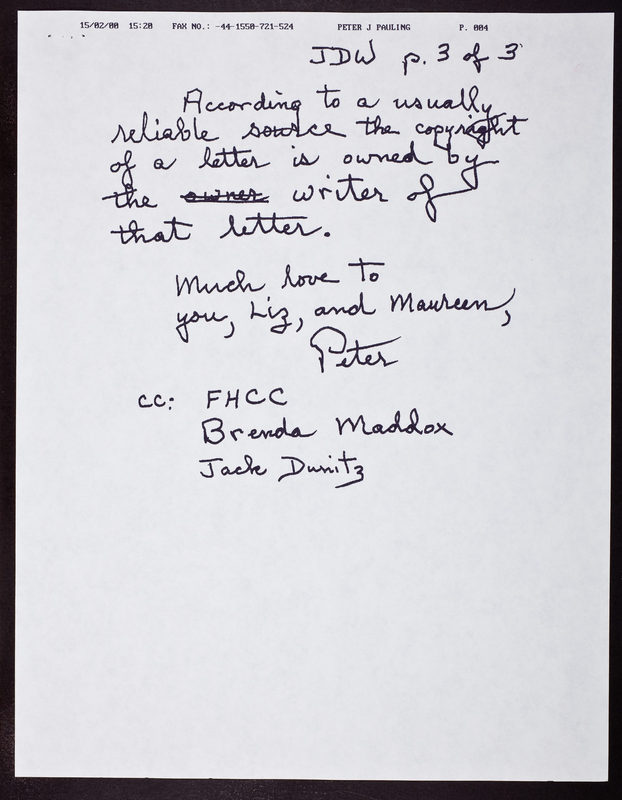 15/02/00 15:20 FAX NO.: -44-1550-721-524 PETER J PAULING P. 004
JDW p. 3 of 3
According to a usually
reliable source the copyright
of a letter is owned by
the owner writer of
that letter.
Much love to
you, Liz, and Maureen,
Peter
cc: FHCC
Brenda Maddox
Jack Dunitz